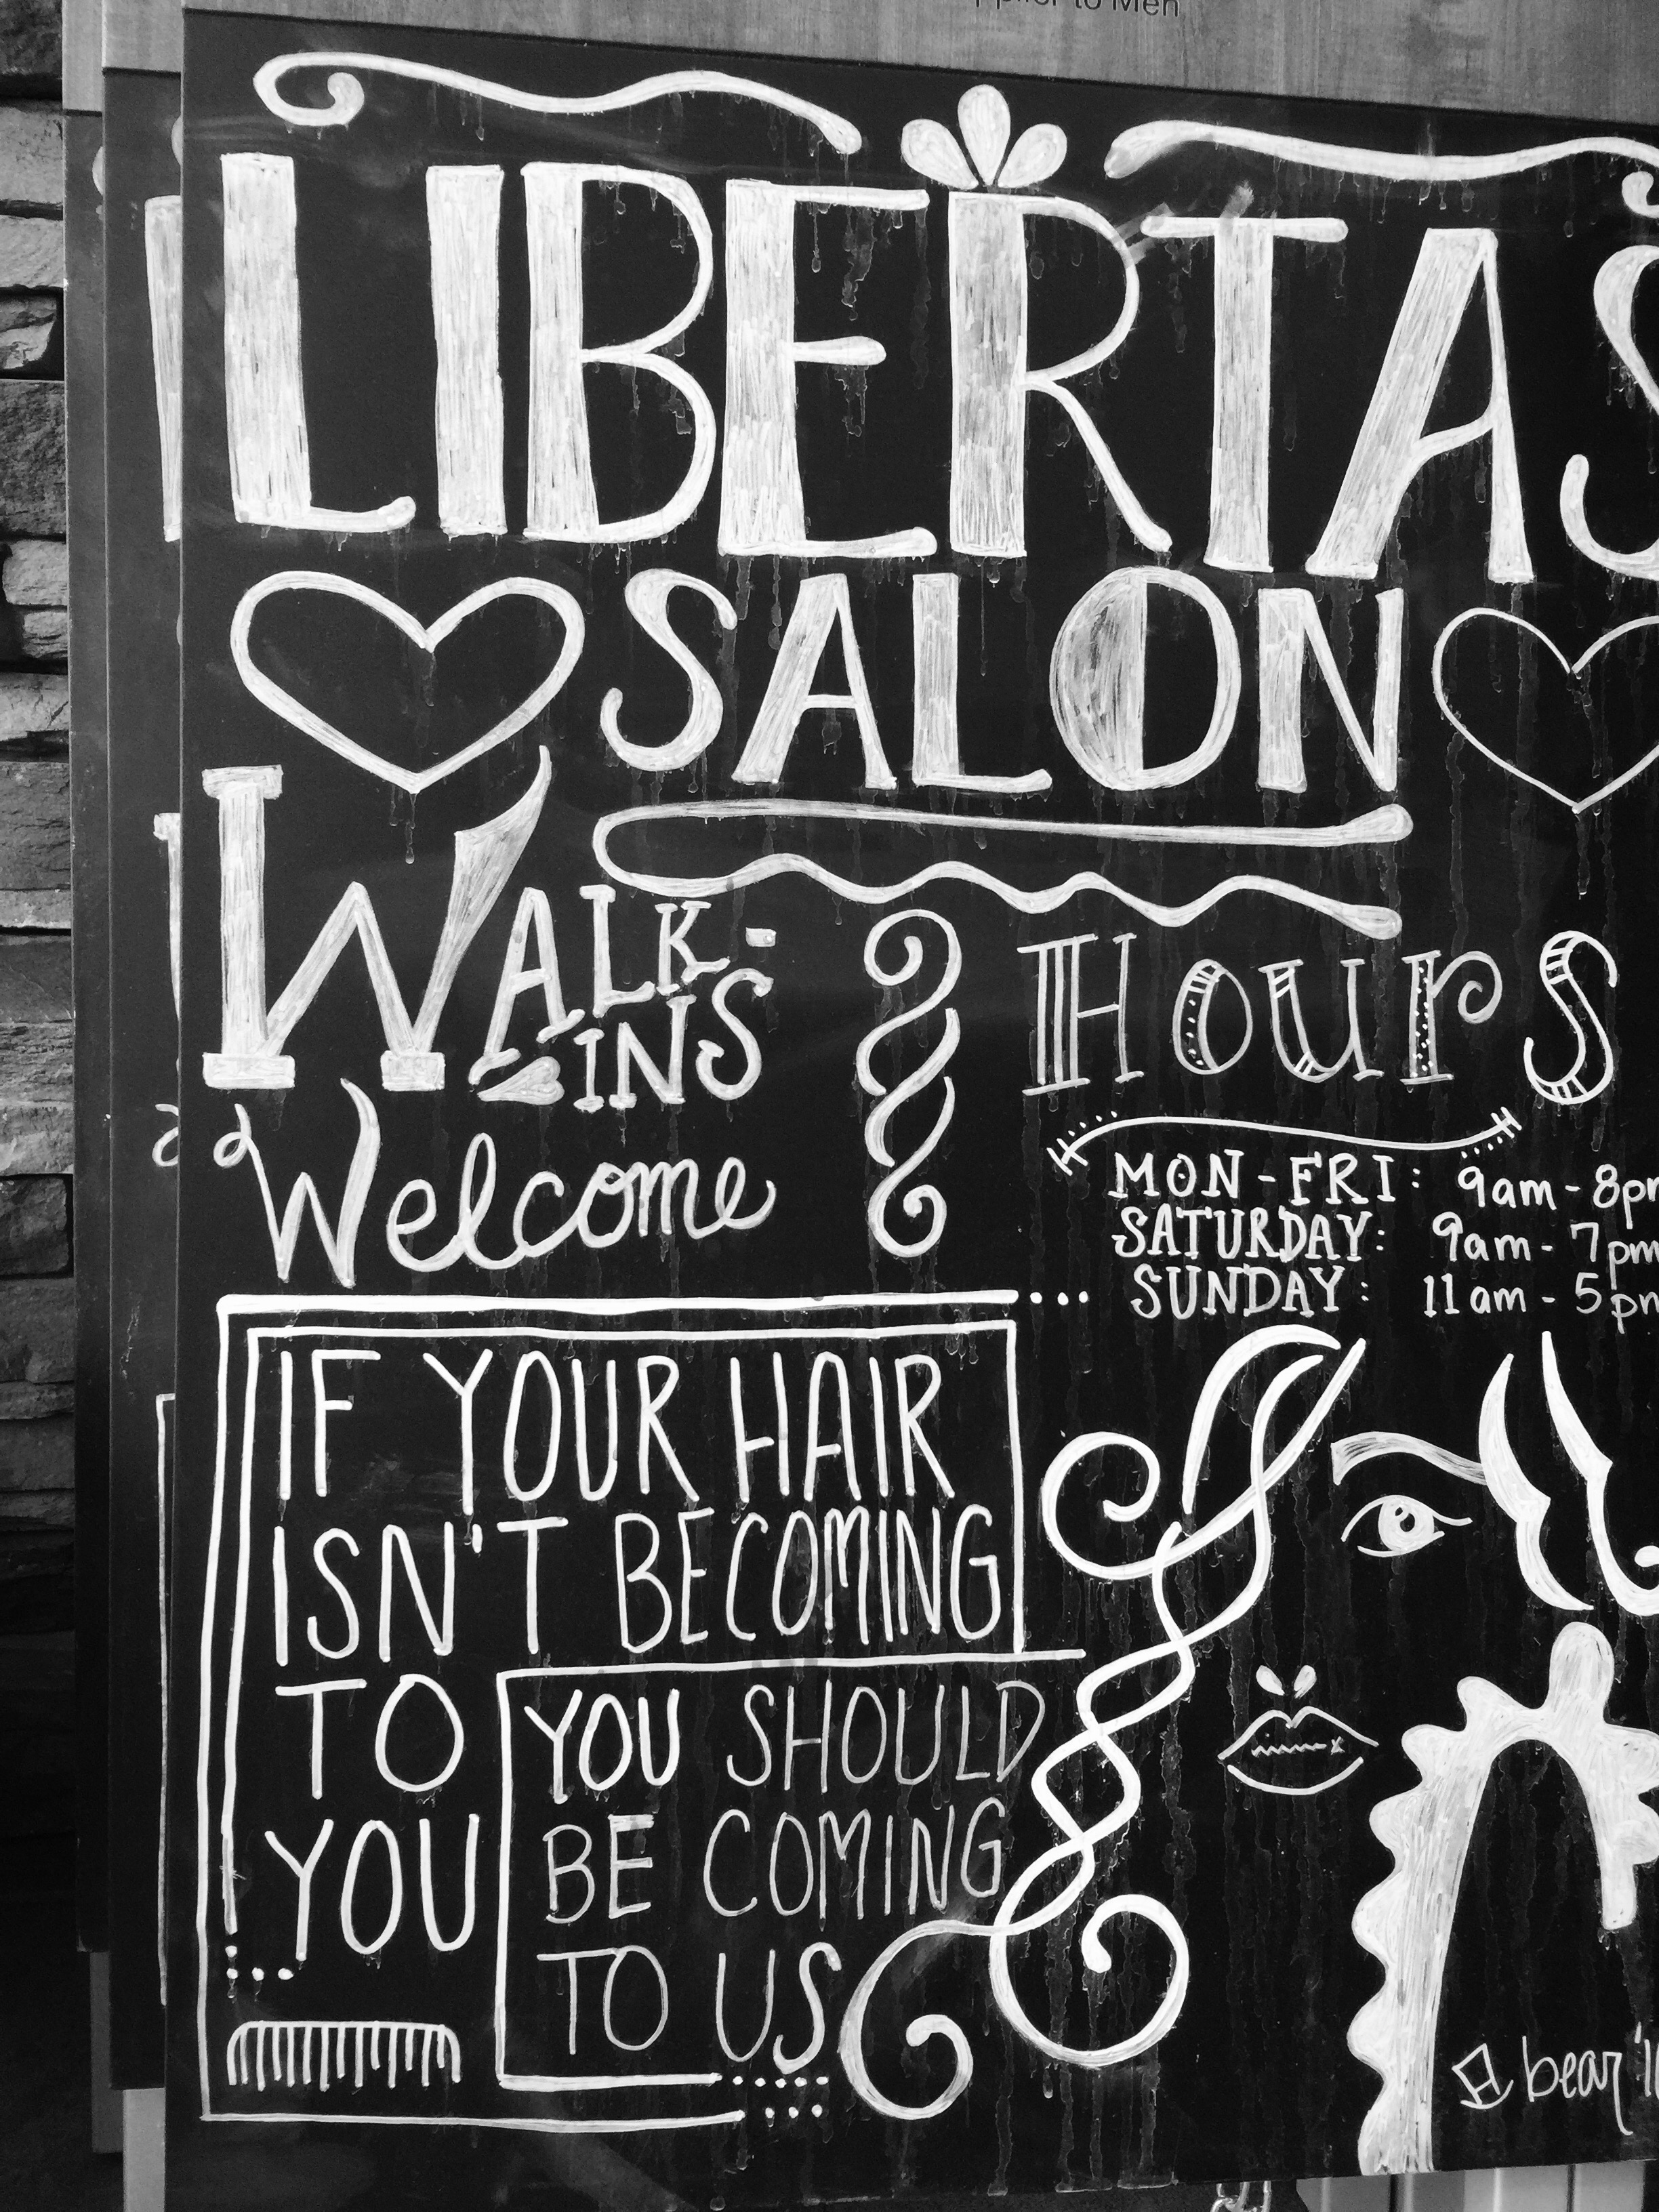 to Men
LIBERTAS
SALON
WALK-
INS
Welcome
Hours
MON-FRI: 9am-8pm
SATURDAY: 9am-7pm
SUNDAY: 11am-5pm
IF YOUR HAIR
ISN'T BECOMING
TO
YOU
YOU SHOULD
BE COMING
TO US
bear